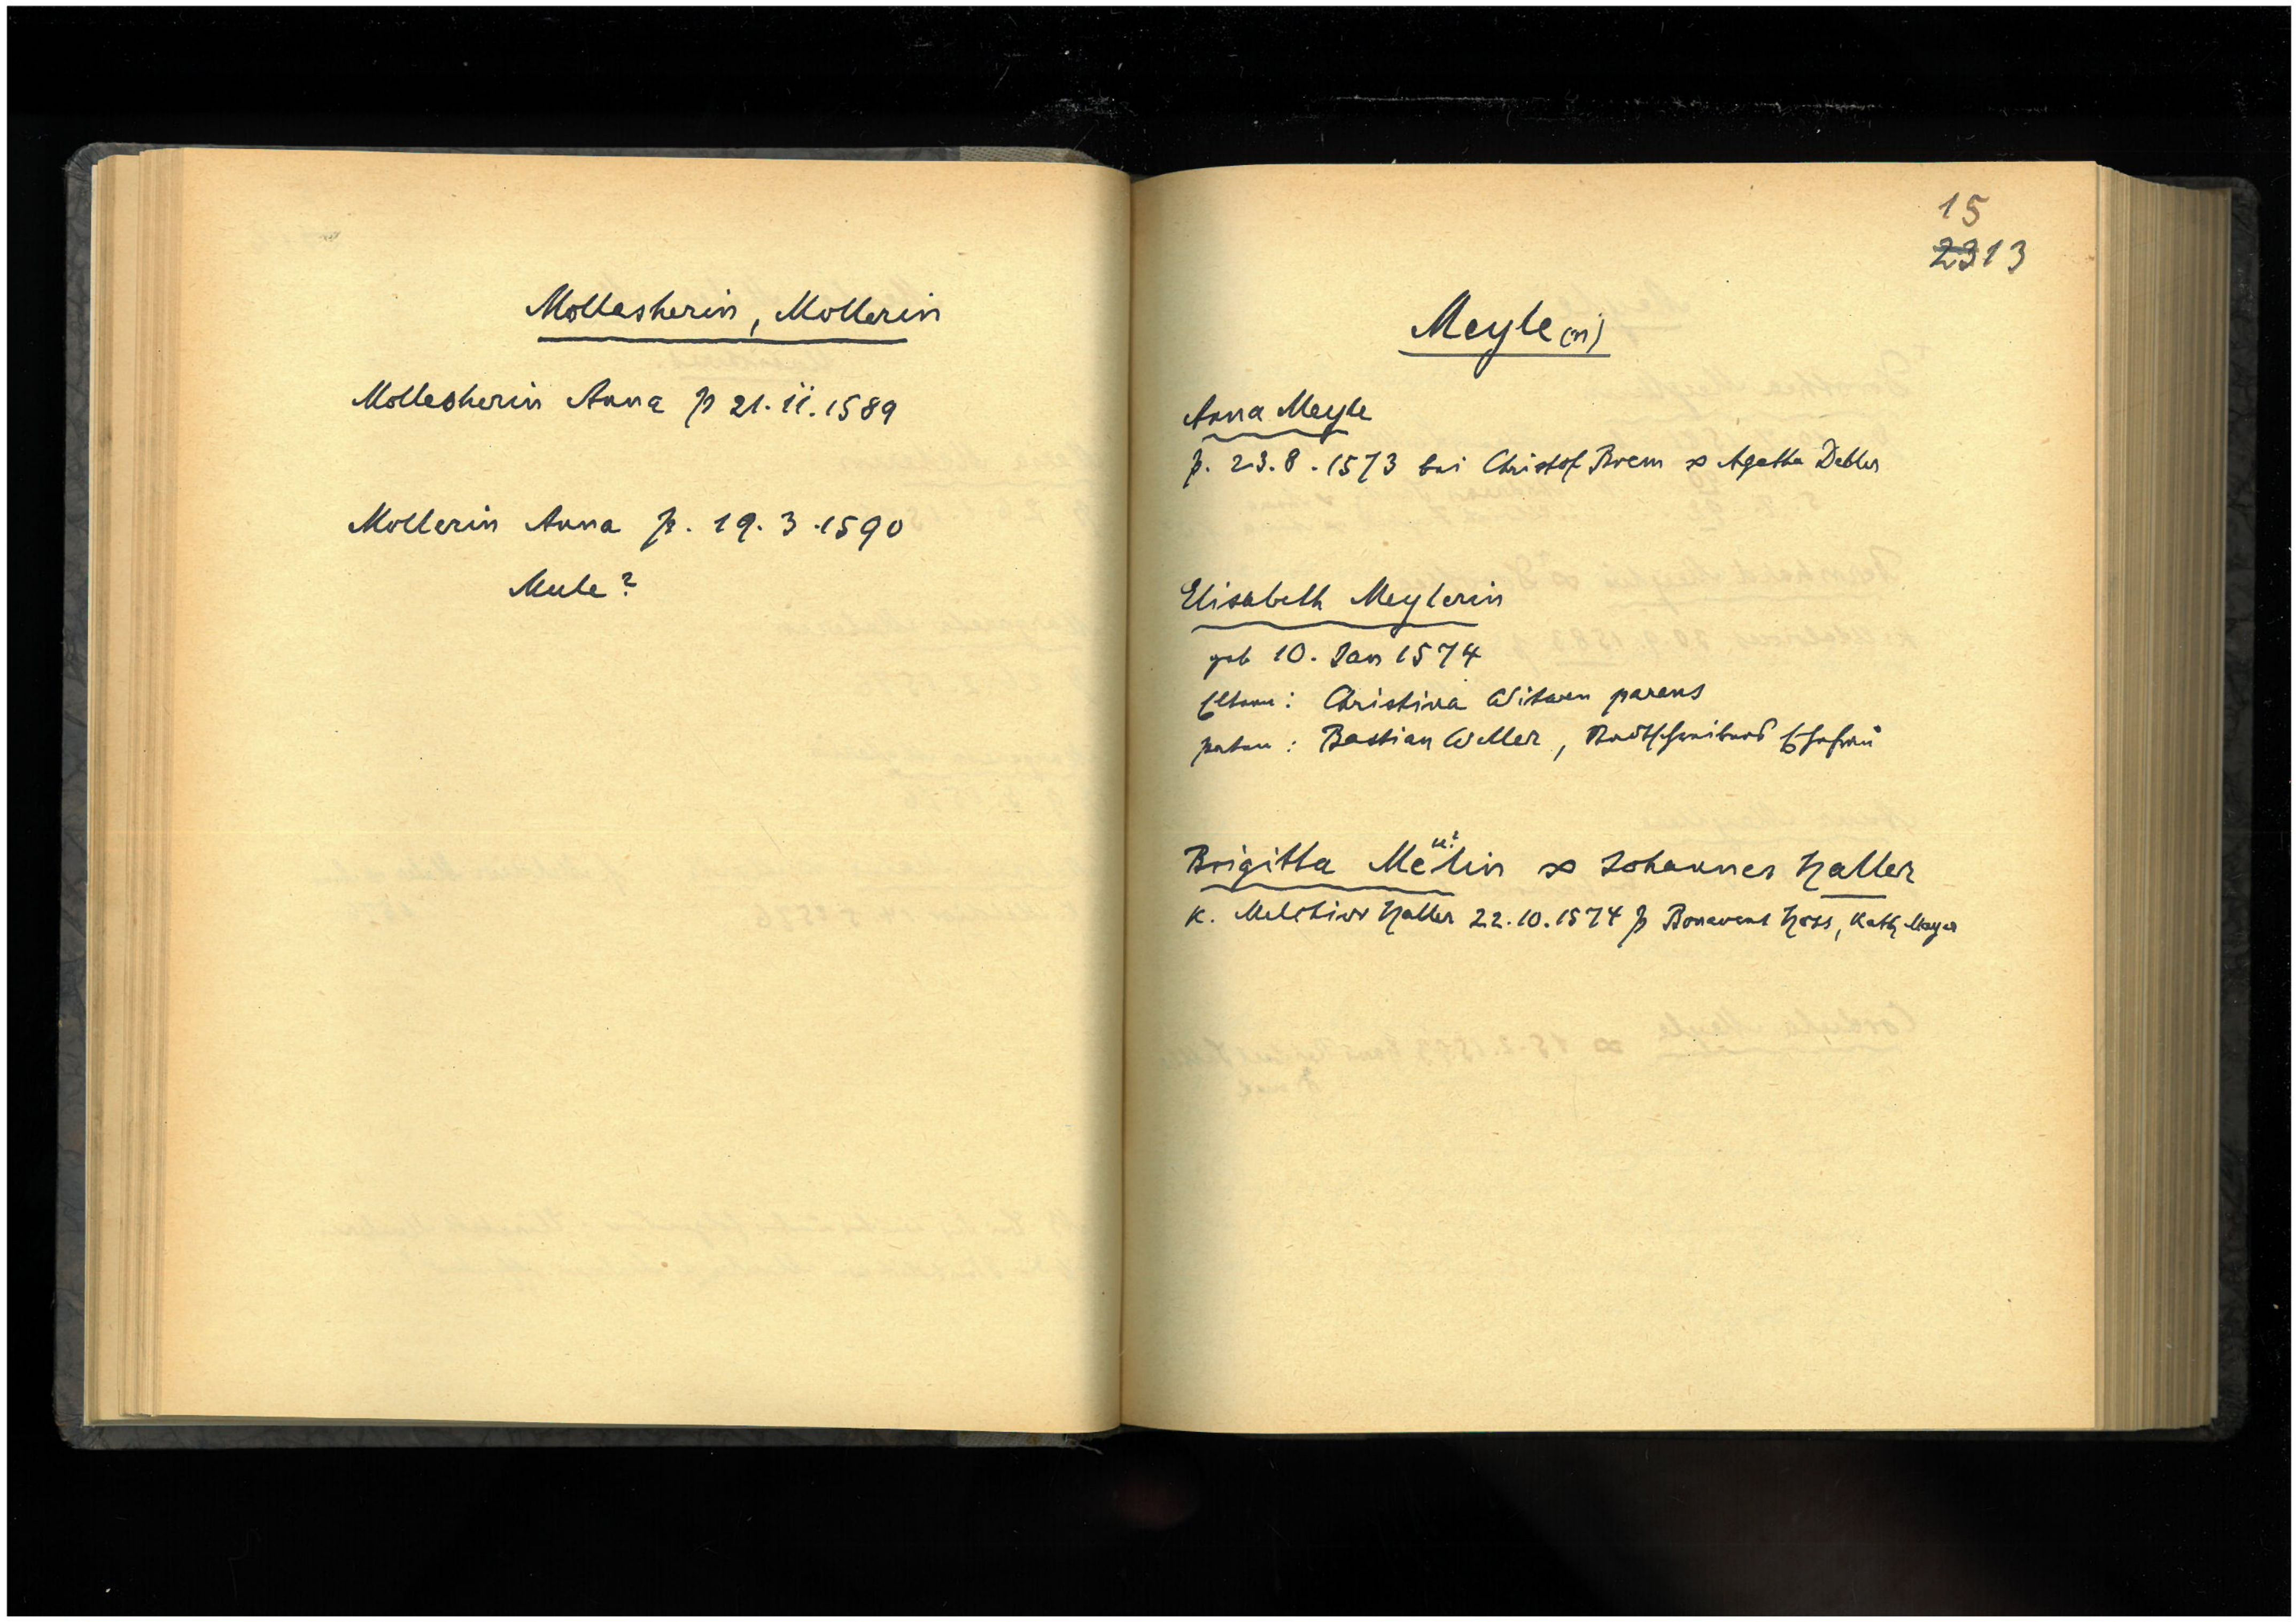 Mollesherin, Mollerin
Mollesherin Anna p 21.ii.1589
Mollerin Anna p. 19.3.1590
Mule?
15
2313
Meyle(n)
Anna Meyle
p. 23.8.1573 bei Christof Brem ∞ Agatha Debler
Elisabeth Meylerin
geb 10. Jan 1574
Eltern: Christina Witwen parens
paten: Bastian Weller, Stadtschreibers Ehefrau
Brigitta Melin ∞ Johannes Haller
K. Melchior Haller 22.10.1574 p Bonavent Hoss, Kath Mayer